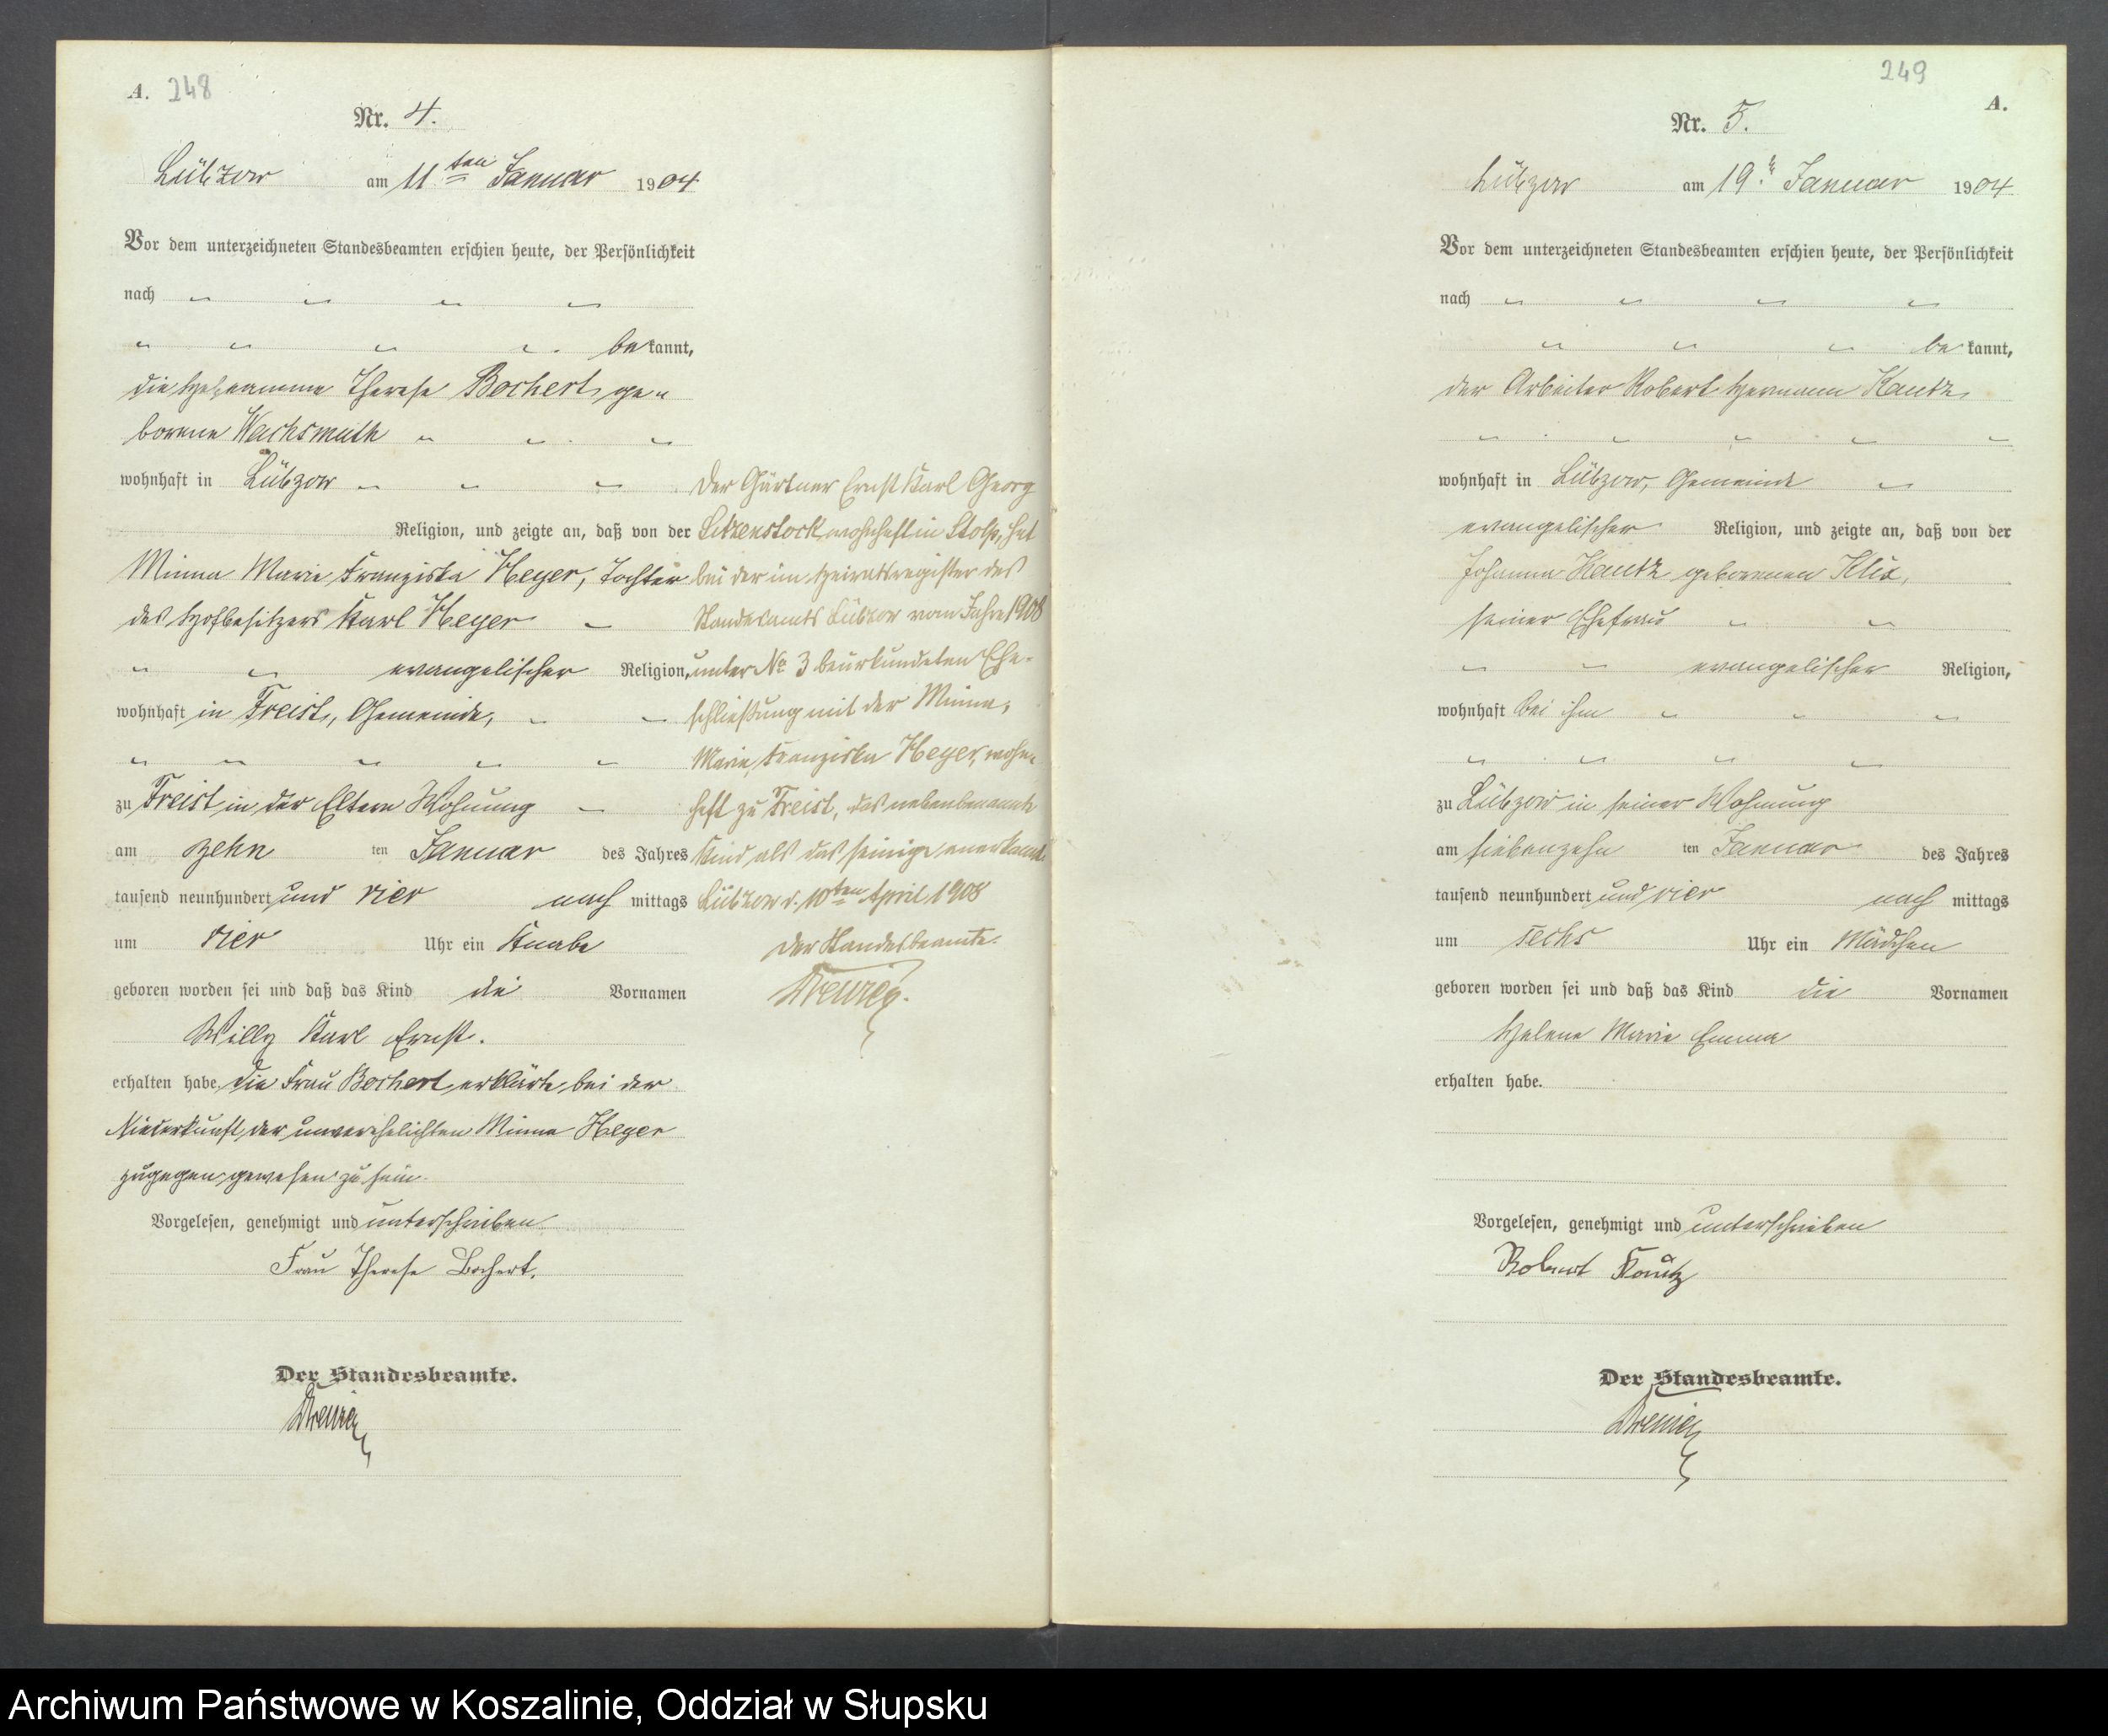 A. 248
Nr. 4.
Lübzow am 11ten Januar 1904
Vor dem unterzeichneten Standesbeamten erschien heute, der Persönlichkeit
nach
bekannt,
die Hebeamme Therese Bochert, ge-
borene Wachsmuth
wohnhaft in Lübzow
Religion, und zeigte an, daß von der
Minna Marie Franziska Heyer, Tochter
des Hofbesitzers Karl Heyer
evangelischer Religion,
wohnhaft in Freist, Gemeinde,
zu Freist in der Eltern Wohnung
am zehn ten Januar des Jahres
tausend neunhundert und vier nach mittags
um vier Uhr ein Knabe
geboren worden sei und daß das Kind die Vornamen
Willy Karl Ernst.
erhalten habe. Die Frau Bochert erklärte, bei der
Niederkunft der unverehelichten Minna Heyer
zugegen gewesen zu sein.
Vorgelesen, genehmigt und unterschrieben
Frau Therese Bochert.
Der Standesbeamte.
Der Gärtner Ernst Karl Georg
wohnhaft in Stolp, hat
bei der im Heiratsregister des
Standesamts Lübzow vom Jahre 1908
unter No 3 beurkundeten Ehe-
schließung mit der Minna,
Marie, Franziska Heyer, wohn-
haft zu Freist, das nebenbenannte
Kind als das seinige anerkannt.
Lübzow d. 10ten April 1908
Der Standesbeamte.
249
A.
Nr. 5.
Lübzow am 19. Januar 1904
Vor dem unterzeichneten Standesbeamten erschien heute, der Persönlichkeit
nach
bekannt,
der Arbeiter Robert Hermann Kautz
wohnhaft in Lübzow, Gemeinde
evangelischer Religion, und zeigte an, daß von der
Johanna Kautz geborenen Klix,
seiner Ehefrau
evangelischer Religion,
wohnhaft bei ihm
zu Lübzow in seiner Wohnung
am siebenzehn ten Januar des Jahres
tausend neunhundert und vier nach mittags
um sechs Uhr ein Mädchen
geboren worden sei und daß das Kind die Vornamen
Helene Marie Emma
erhalten habe.
Vorgelesen, genehmigt und unterschrieben
Robert Kautz
Der Standesbeamte.
Archiwum Państwowe w Koszalinie, Oddział w Słupsku